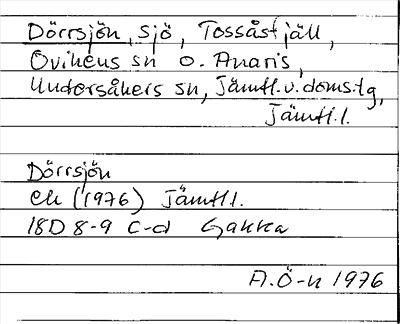 Dörrsjön, sjö, Tossåsfjäll,
Ovikens sn o. Anaris,
Undersåkers sn, Jämtl. v. doms.tg,
Jämtl. l.
Dörrsjön
ek (1976) Jämtl l.
18D 8-9 c-d Gakka
A.Ö-n 1976